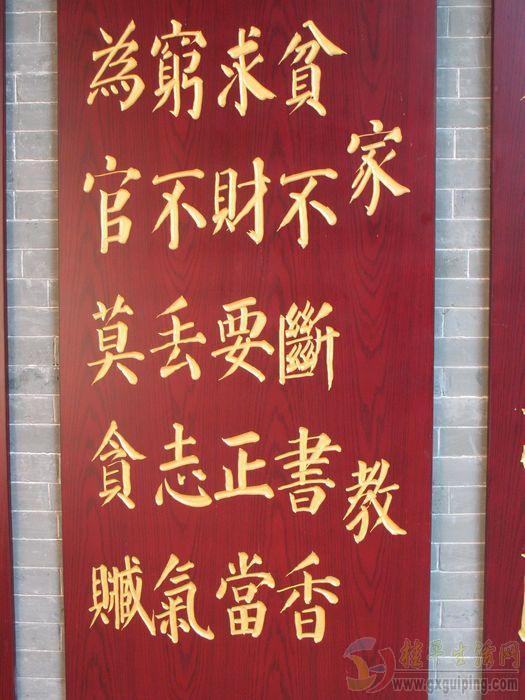 家教
貧不斷書香
求財要正當
窮不丢志氣
為官莫貪贓
桂平生活网
www.gxguiping.com